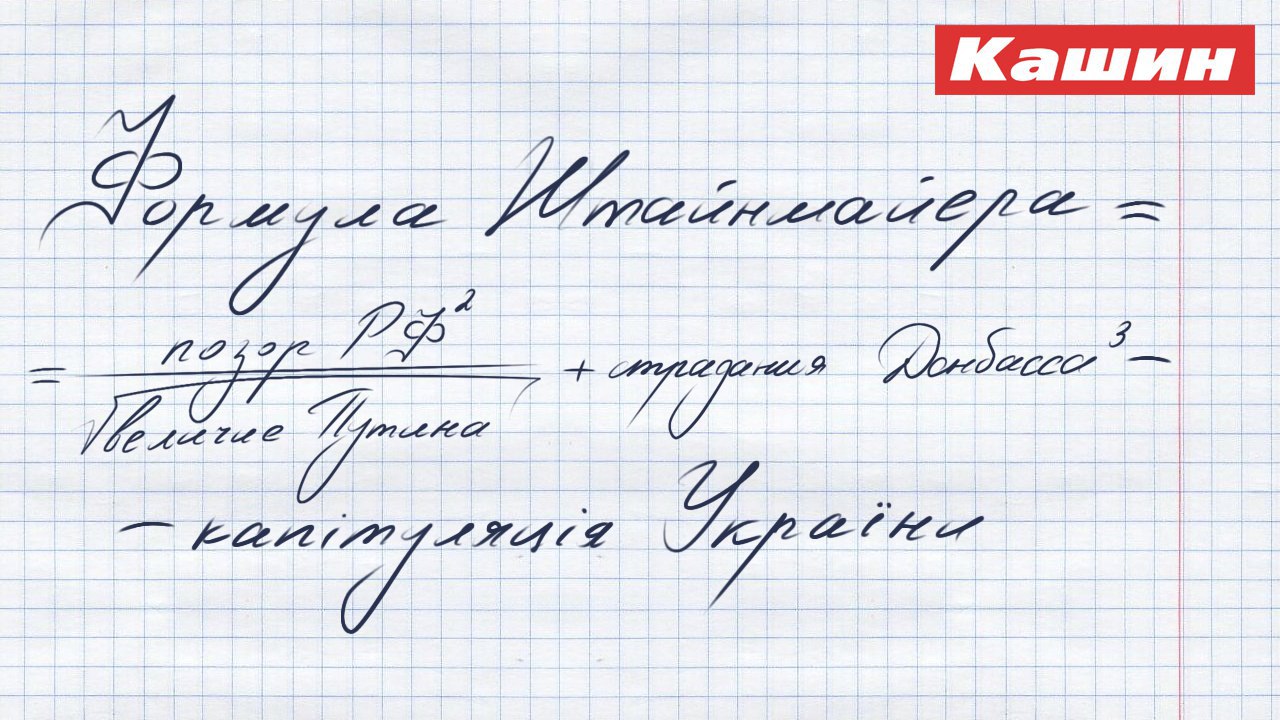 Кашин
Формула Штайнмайера =
= позор РФ²
√величие Путина
+ страдания Донбасса³ −
− капітуляція України